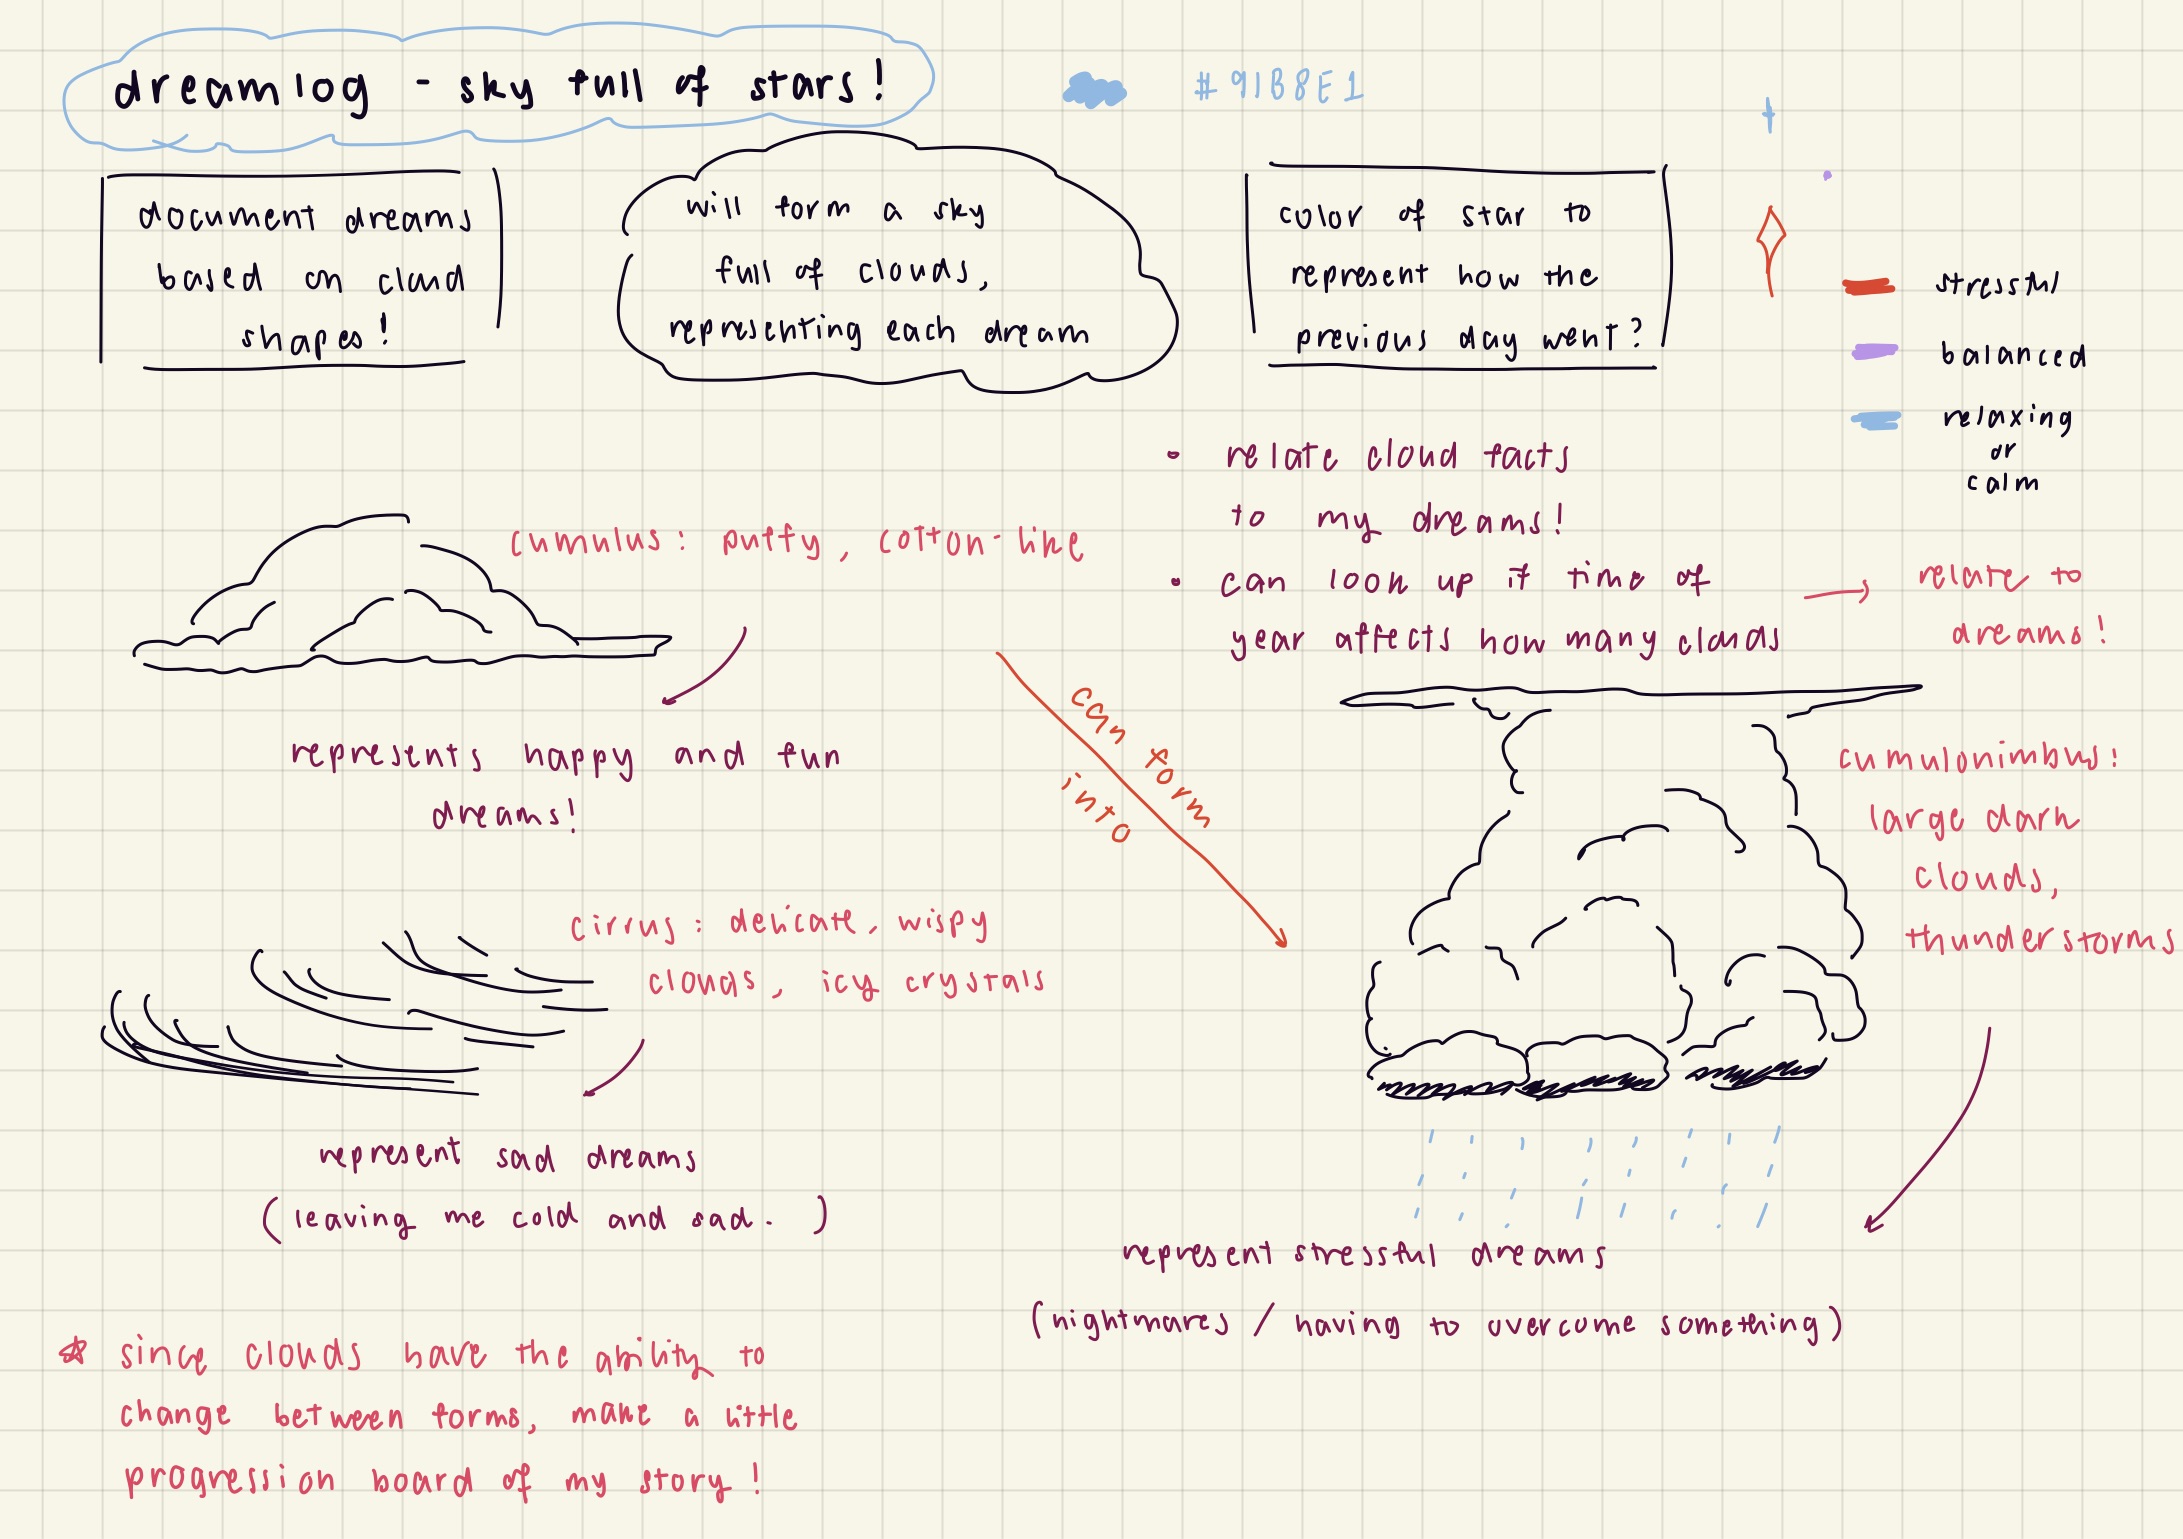 dreamlog - sky full of stars!
#91B8E1
document dreams
based on cloud
shapes!
will form a sky
full of clouds,
representing each dream
color of star to
represent how the
previous day went?
stressful
balanced
relaxing
or
calm
• relate cloud facts
to my dreams!
• can look up if time of
year affects how many clouds
→ relate to
dreams!
cumulus: puffy, cotton-like
represents happy and fun
dreams!
can form
into
cumulonimbus:
large dark
clouds,
thunderstorms
cirrus: delicate, wispy
clouds, icy crystals
represent sad dreams
(leaving me cold and sad. )
represent stressful dreams
(nightmares / having to overcome something)
☆ since clouds have the ability to
change between forms, make a little
progression board of my story!